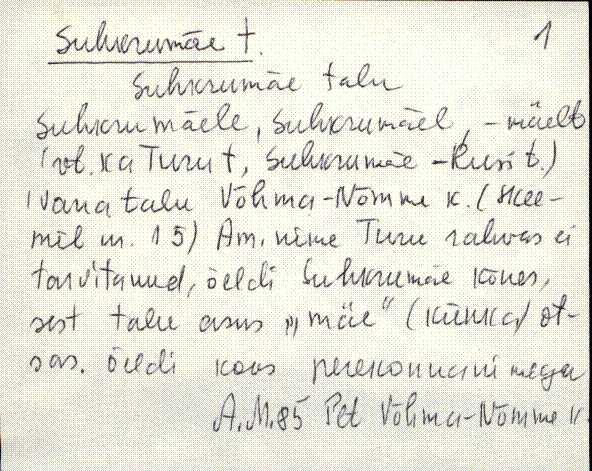 Suhkrumäe t. 1
Suhkrumäe talu
Suhkrumäele, Suhkrumäel, -mäelt
(vt. ka Turu t, Suhkrumäe-Rusi t.)
Vana talu Võhma-Nõmme k. (Skee-
mil nr. 15) Am. nime Turu rahvas ei
tarvitanud, öeldi Suhkrumäe kõnes,
sest talu asus „mäe" (künka) ot-
sas. Öeldi koos perekonnanimega
A.M. 85 Pet Võhma-Nõmme k.